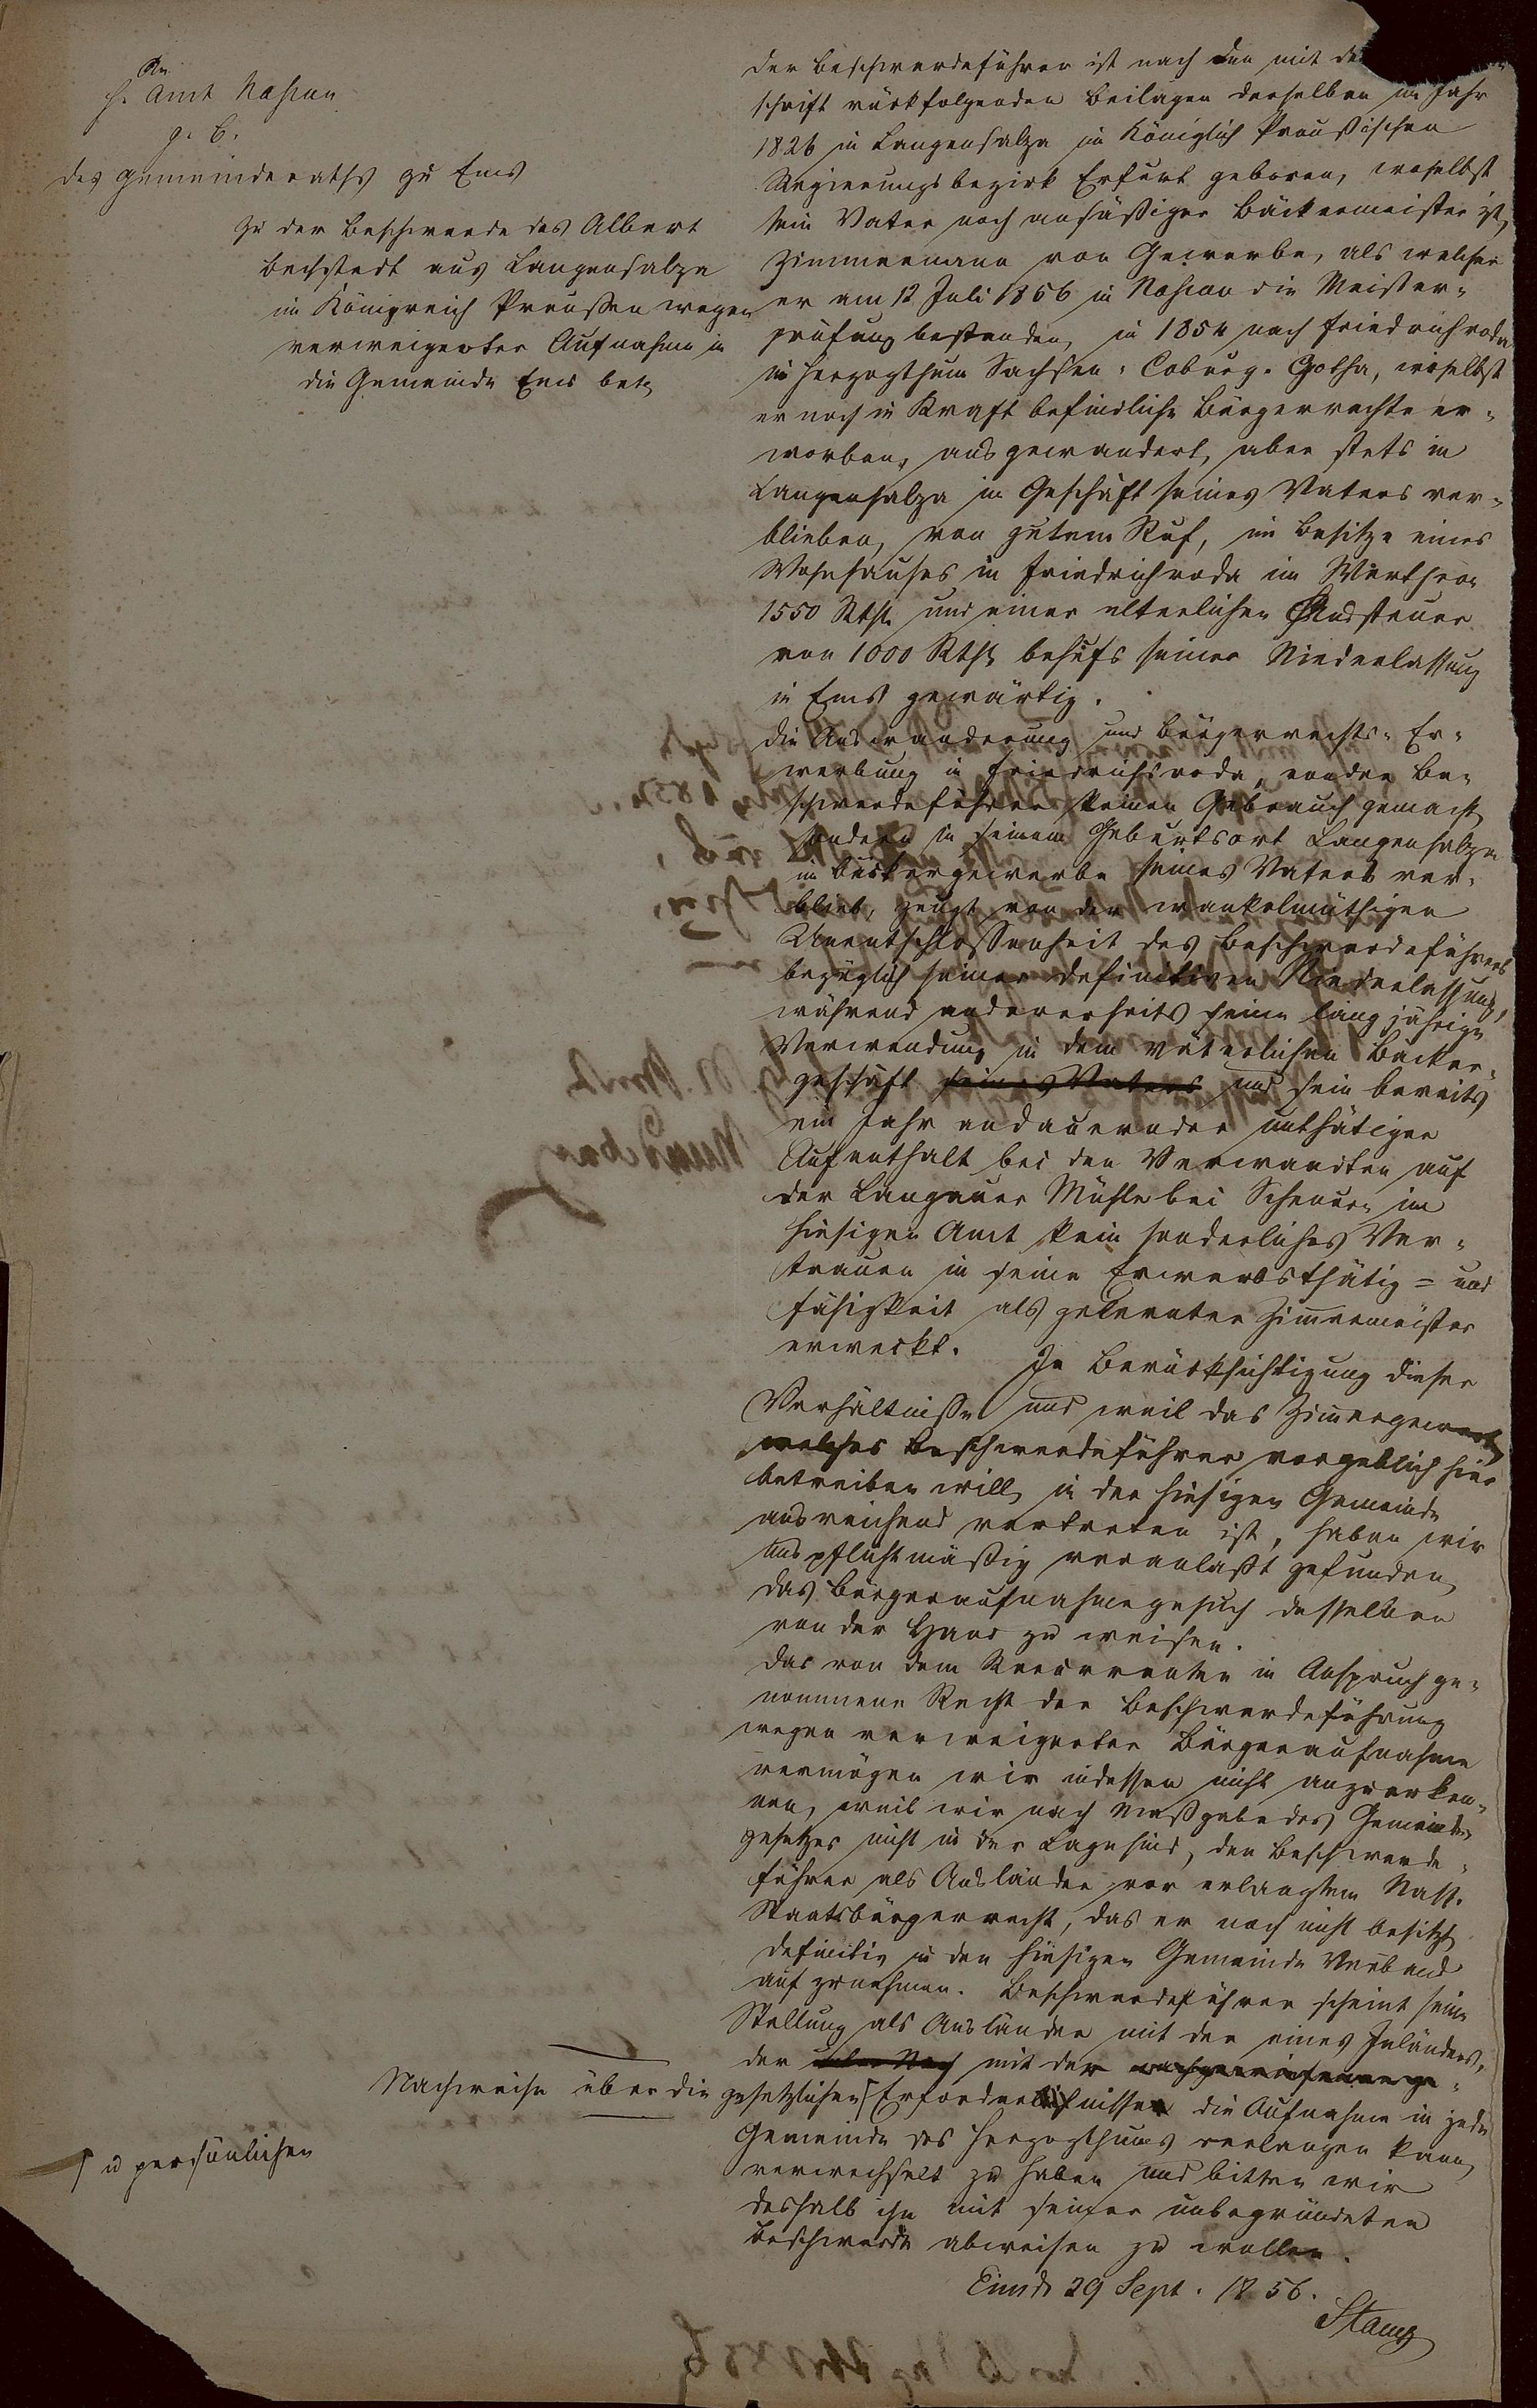 An
H. Amt Nassau
g. B.
des Gemeinderaths zu Ems
zu der Beschwerde des Albert
Bechstedt aus Langensalza
im Königreich Preussen wegen
verweigerter Aufnahme in
die Gemeinde Ems betr.
Der Beschwerdeführer ist nach den mit de
schrift rückfolgenden Beilagen derselben im Jahr
1826 in Langensalza im Königlich Preußischen
Regierungsbezirk Erfurt geboren, woselbst
sein Vater noch ansäßiger Bäckermeister ist,
Zimmermann von Gewerbe, als welcher
er am 12 Juli 1856 in Nassau die Meister-
prüfung bestanden, in 1854 nach Friedrichroda
im Herzogthum Sachsen-Coburg-Gotha, woselbst
er noch in Kraft befindliche Bürgerrechte er-
worben, ausgewandert, aber stets in
Langensalza im Geschäft seines Vaters ver-
blieben, von gutem Ruf, im Besitze eines
Wohnhauses in Friedrichroda im Werthe von
1550 Rth. und einer elterlichen Aussteuer
von 1000 Rth. behufs seiner Niederlassung
in Ems gewärtig.
Die Auswanderung und Bürgerrechts-Er-
werbung in Friedrichsroda, von der Be-
schwerdeführer keinen Gebrauch gemacht,
sondern in seinem Geburtsort Langensalza
im Bäckergewerbe seines Vaters ver-
blieb, zeugt von der wankelmüthigen
Unentschlossenheit des Beschwerdeführers
bezüglich seiner definitiven Niederlassung,
während andererseits seine langjährige
Verwendung in dem väterlichen Bäcker-
geschäft seines Vaters und sein bereits
ein Jahr andauernder unthätiger
Aufenthalt bei den Verwandten auf
der Langauer Mühle bei Scheuern im
hiesigen Amt kein sonderliches Ver-
trauen in seine Erwerbsthätig- und
fähigkeit als gelernter Zimmermeister
erweckt.
In Berücksichtigung dieser
Verhältnisse und weil das Zimmergewerb,
welches Beschwerdeführer vorgeblich hier
betreiben will, in der hiesigen Gemeinde
ausreichend vertreten ist, haben wir
uns pflichtmäßig veranlaßt gefunden,
das Bürgeraufnahmegesuch desselben
von der Hand zu weisen.
Das von dem Recurrenten in Anspruch ge-
nommene Recht der Beschwerdeführung
wegen verweigerter Bürgeraufnahme
vermögen wir indessen nicht anzuerken-
nen, weil wir nach Maßgabe des Gemeinde-
gesetzes nicht in der Lage sind, den Beschwerde-
führer als Ausländer vor erlangtem Nass.
Staatsbürgerrecht, das er noch nicht besitzt,
definitiv in den hiesigen Gemeinde Verband
aufzunehmen. Beschwerdeführer scheint seine
Stellung als Ausländer mit der eines Inländers,
der mit der
Nachweise über die gesetzlichen Erfordernisse die Aufnahme in jede
u persönlichen
Gemeinde des Herzogthums verlangen kann,
verwechselt zu haben und bitten wir
deshalb ihn mit seiner unbegründeten
Beschwerde abweisen zu wollen.
Ems d 29 Sept. 1856.
Stang